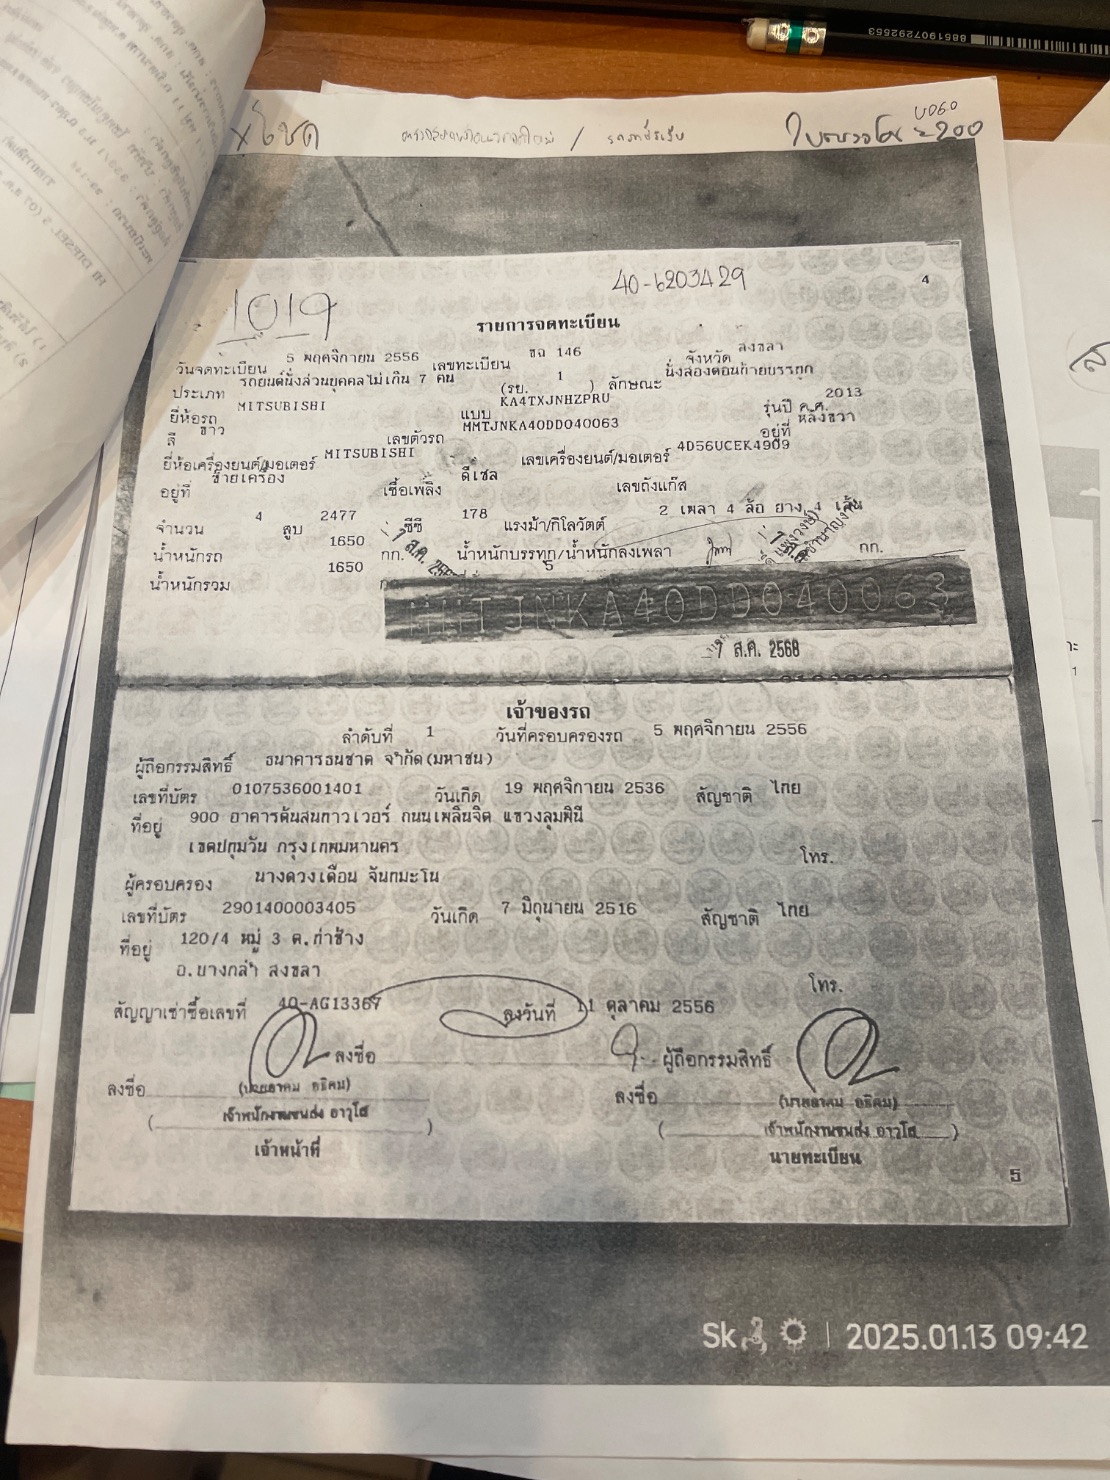 8851907292553
โชค
ใบตรวจ
200
40-6203429
4
1019
รายการจดทะเบียน
วันจดทะเบียน 5 พฤศจิกายน 2556 เลขทะเบียน ขฉ 146 จังหวัด สงขลา
ประเภท รถยนต์นั่งส่วนบุคคลไม่เกิน 7 คน (รย. 1 ) ลักษณะ นั่งสองตอนท้ายบรรทุก
ยี่ห้อรถ MITSUBISHI แบบ KA4TXJNHZPRU รุ่นปี ค.ศ. 2013
สี ขาว เลขตัวรถ MMTJNKA40DD040063 อยู่ที่ หลังขวา
ยี่ห้อเครื่องยนต์/มอเตอร์ MITSUBISHI เลขเครื่องยนต์/มอเตอร์ 4D56UCEK4909
อยู่ที่ ซ้ายเครื่อง เชื้อเพลิง ดีเซล เลขถังแก๊ส
จำนวน 4 สูบ 2477 ซีซี 178 แรงม้า/กิโลวัตต์ 2 เพลา 4 ล้อ ยาง 4 เส้น
น้ำหนักรถ 1650 กก. น้ำหนักบรรทุก/น้ำหนักลงเพลา กก.
น้ำหนักรวม 1650 5
MMTJNKA40DD040063
7 ส.ค. 2568
เจ้าของรถ
ลำดับที่ 1 วันที่ครอบครองรถ 5 พฤศจิกายน 2556
ผู้ถือกรรมสิทธิ์ ธนาคารธนชาต จำกัด(มหาชน)
เลขที่บัตร 0107536001401 วันเกิด 19 พฤศจิกายน 2536 สัญชาติ ไทย
ที่อยู่ 900 อาคารต้นสนทาวเวอร์ ถนนเพลินจิต แขวงลุมพินี
เขตปทุมวัน กรุงเทพมหานคร โทร.
ผู้ครอบครอง นางดวงเดือน จันทมะโน
เลขที่บัตร 2901400003405 วันเกิด 7 มิถุนายน 2516 สัญชาติ ไทย
ที่อยู่ 120/4 หมู่ 3 ต.ท่าช้าง
อ.บางกล่ำ สงขลา โทร.
สัญญาเช่าซื้อเลขที่ 40-AG13367 ลงวันที่ 11 ตุลาคม 2556
ลงชื่อ ผู้ถือกรรมสิทธิ์
ลงชื่อ ลงชื่อ
เจ้าพนักงานขนส่ง อาวุโส เจ้าพนักงานขนส่ง อาวุโส
เจ้าหน้าที่ นายทะเบียน
5
2025.01.13 09:42